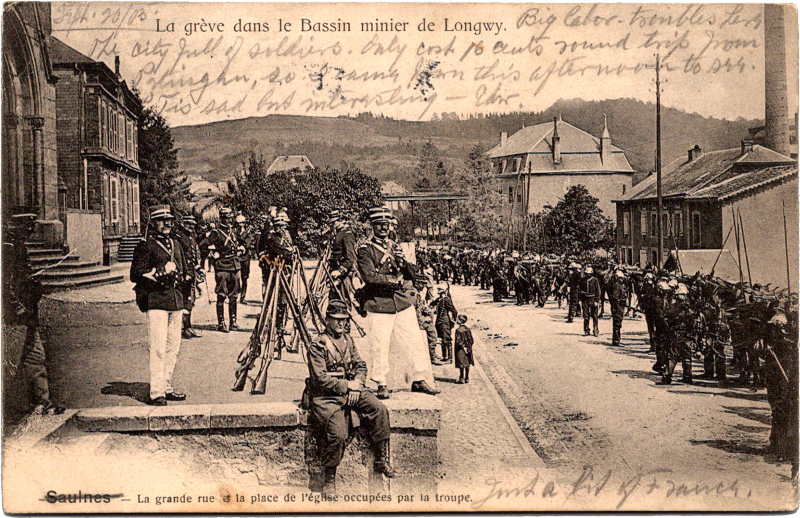 Sept. 20/05
La grève dans le Bassin minier de Longwy.
Big labor troubles here
The city full of soldiers. Only cost 10 cents round trip from
so I came down this afternoon to see.
It is sad but interesting —
Saulnes — La grande rue et la place de l'église occupées par la troupe.
Just a bit of France.